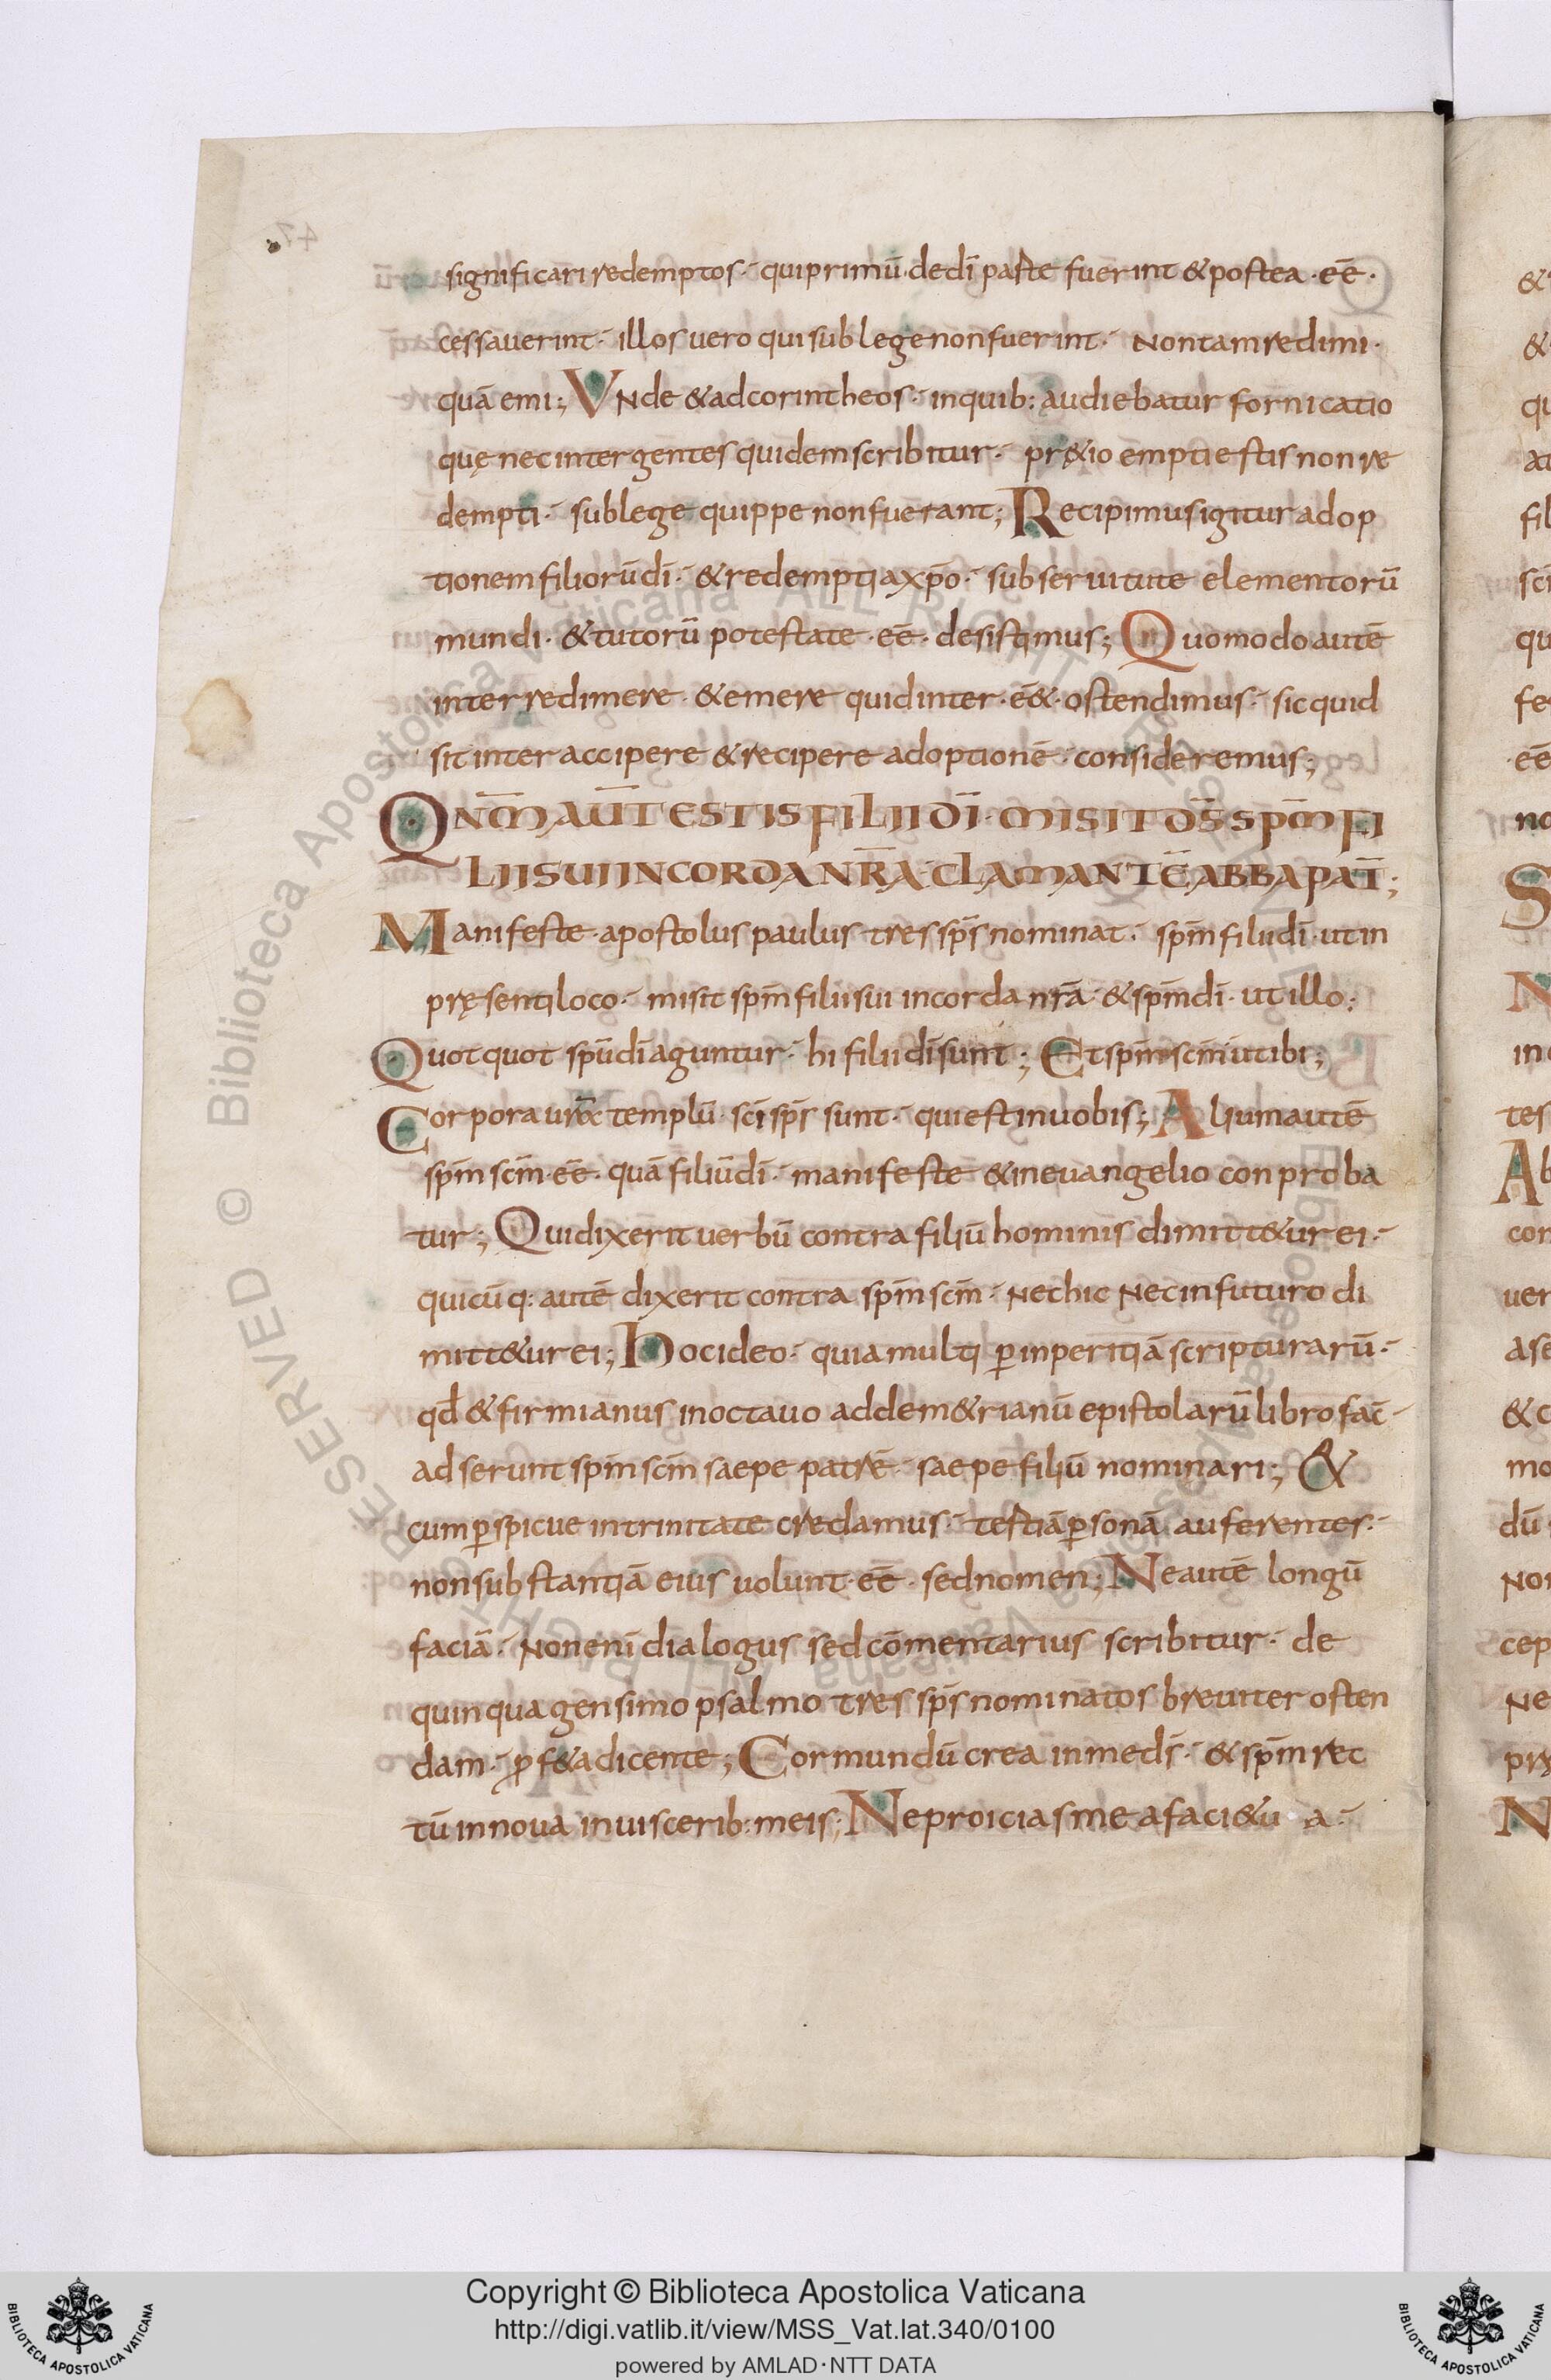 significari redemptos · qui primū de dī paste fuerint & postea · eē ·
cessauerint · illos uero qui sub lege non fuerint · Non tam redimi ·
quā emi ; VNde & ad corintheos · in quib: audiebatur fornicatio
quę nec inter gentes quidem scribitur · pr&io empti estis non re
dempti · sub lege quippe non fuerant ; Recipimus igitur adop
tionem filiorū dī · & redempti a xp̄o · sub seruitute elementorū
mundi · & tutorū potestate · eē · desistimus ; Quomodo autē
inter redimere · & emere quid inter · ē& · ostendimus · sic quid
sit inter accipere & recipere adoptionē · consideremus ;
QNM̄ AUT̄ ESTIS FILII DĪ · MISIT DS̄ SPM̄ FI
LII SUI IN CORDA NR̄A · CLAMANTĒ ABBA PAT̄ ;
Manifeste · apostolus paulus tres sp̄s nominat · sp̄m filii dī · ut in
pręsenti loco · misit sp̄m filii sui in corda nr̄a · & sp̄m dī · ut illo :
Quotquot spū dī aguntur · hi filii dī sunt ; Et sp̄m sc̄m ut ibi ;
Corpora ur̄a templū · sc̄i sp̄s sunt · qui est in uobis ; Alium autē
sp̄m sc̄m · eē · quā filiū dī · manifeste & in euangelio conproba
tur ; Qui dixerit uerbū contra filiū hominis dimitt&ur ei ·
quicūq: autē dixerit contra sp̄m sc̄m · Nec hic Nec in futuro di
mitt&ur ei ; Hoc ideo · quia multi p̄ inperitiā scripturarū ·
qđ & firmianus in octauo ad dem&rianū epistolarū libro fac̄ ·
adserunt sp̄m sc̄m saepe patrē · saepe filiū nominari ; &
cum p̄spicue in trinitate credamus · tertiā p̄sonā auferentes ·
non substantiā eius uolunt · eē · sed nomen ; Ne autē longū
faciā · Non enī dialogus sed cōmentarius scribitur · de
quinquagensimo psalmo tres sp̄s nominatos breuiter osten
dam · p̄f&a dicente ; Cor mundū crea in me ds̄ · & sp̄m rec
tū innoua in uiscerib: meis ; Ne proicias me a faci& u a ·
Copyright © Biblioteca Apostolica Vaticana
http://digi.vatlib.it/view/MSS_Vat.lat.340/0100
powered by AMLAD·NTT DATA